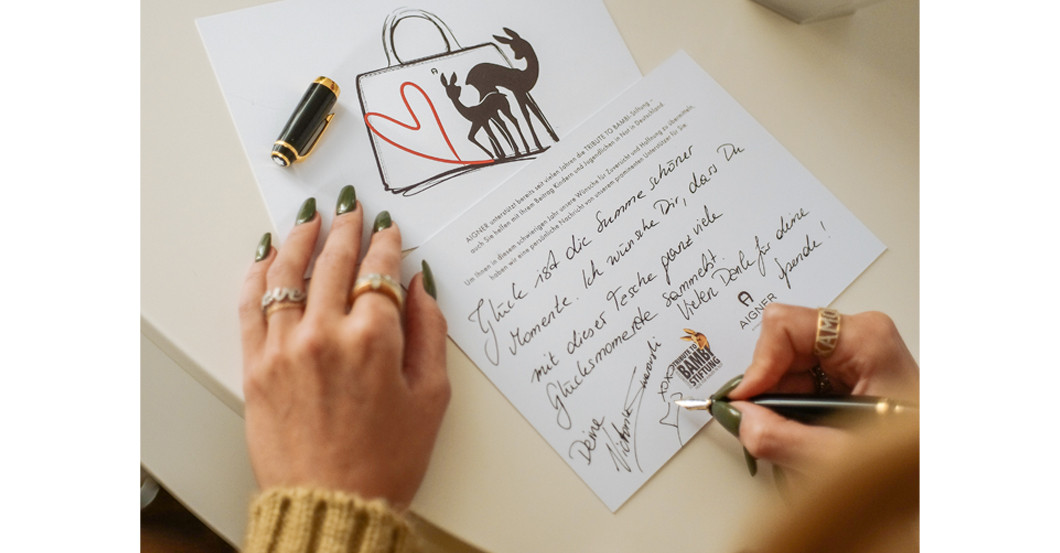 AIGNER unterstützt bereits seit vielen Jahren die TRIBUTE TO BAMBI-Stiftung –
auch Sie helfen mit Ihrem Beitrag Kindern und Jugendlichen in Not in Deutschland.
Um Ihnen in diesem schwierigen Jahr unsere Wünsche für Zuversicht und Hoffnung zu übermitteln,
haben wir eine persönliche Nachricht von unserem prominenten Unterstützer für Sie.
Glück ist die Summe schöner
Momente. Ich wünsche Dir, dass Du
mit dieser Tasche ganz viele
Glücksmomente sammelst.
Vielen Dank für deine
Spende!
AIGNER
TRIBUTE TO
BAMBI
STIFTUNG
XOXO
Deine
Victoria Swarovski